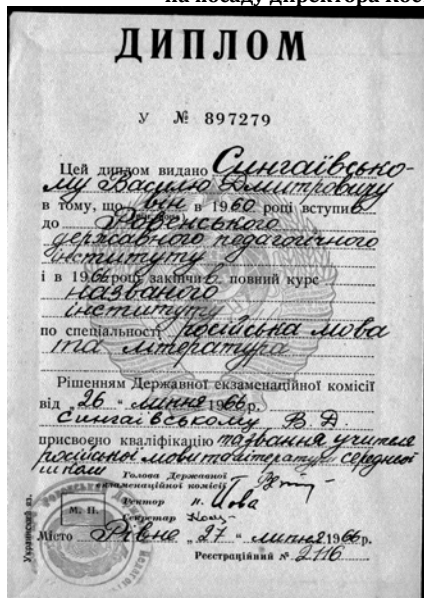 на посаду директора Кос
ДИПЛОМ
У № 897279
Цей диплом видано Сингаївсько-
му Василю Дмитровичу
в тому, що він в 1960 році вступив
до Ровенського
державного педагогічного
інституту
і в 1966 році закінчив повний курс
названого
інституту
по спеціальності російська мова
та література
Рішенням Державної екзаменаційної комісії
від „26 “ липня 1966 р.
Сингаївському В. Д.
присвоєно кваліфікацію та звання учителя
російської мови та літератур. середньої
школи
Голова Державної
екзаменаційної комісії
Ректор
М. П.
Секретар
Місто Рівне „27 “ липня 1966 р.
Реєстраційний № 2116
Український вз.